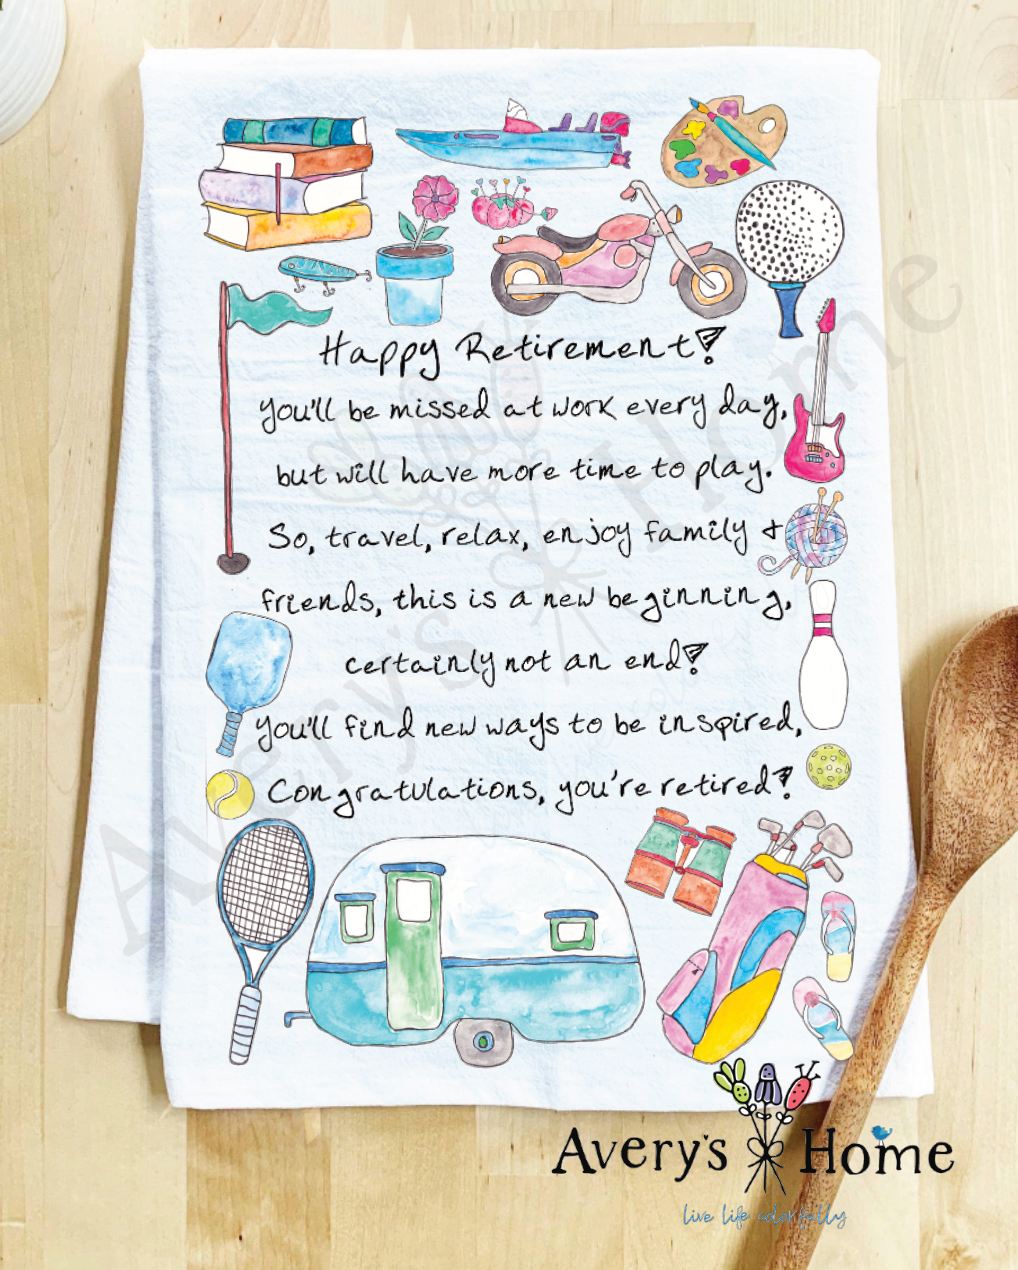 Happy Retirement!
You'll be missed at work every day,
but will have more time to play.
So, travel, relax, enjoy family &
friends, this is a new beginning,
certainly not an end!
You'll find new ways to be inspired,
Congratulations, you're retired!
Avery's Home
Avery's Home
live life colorfully